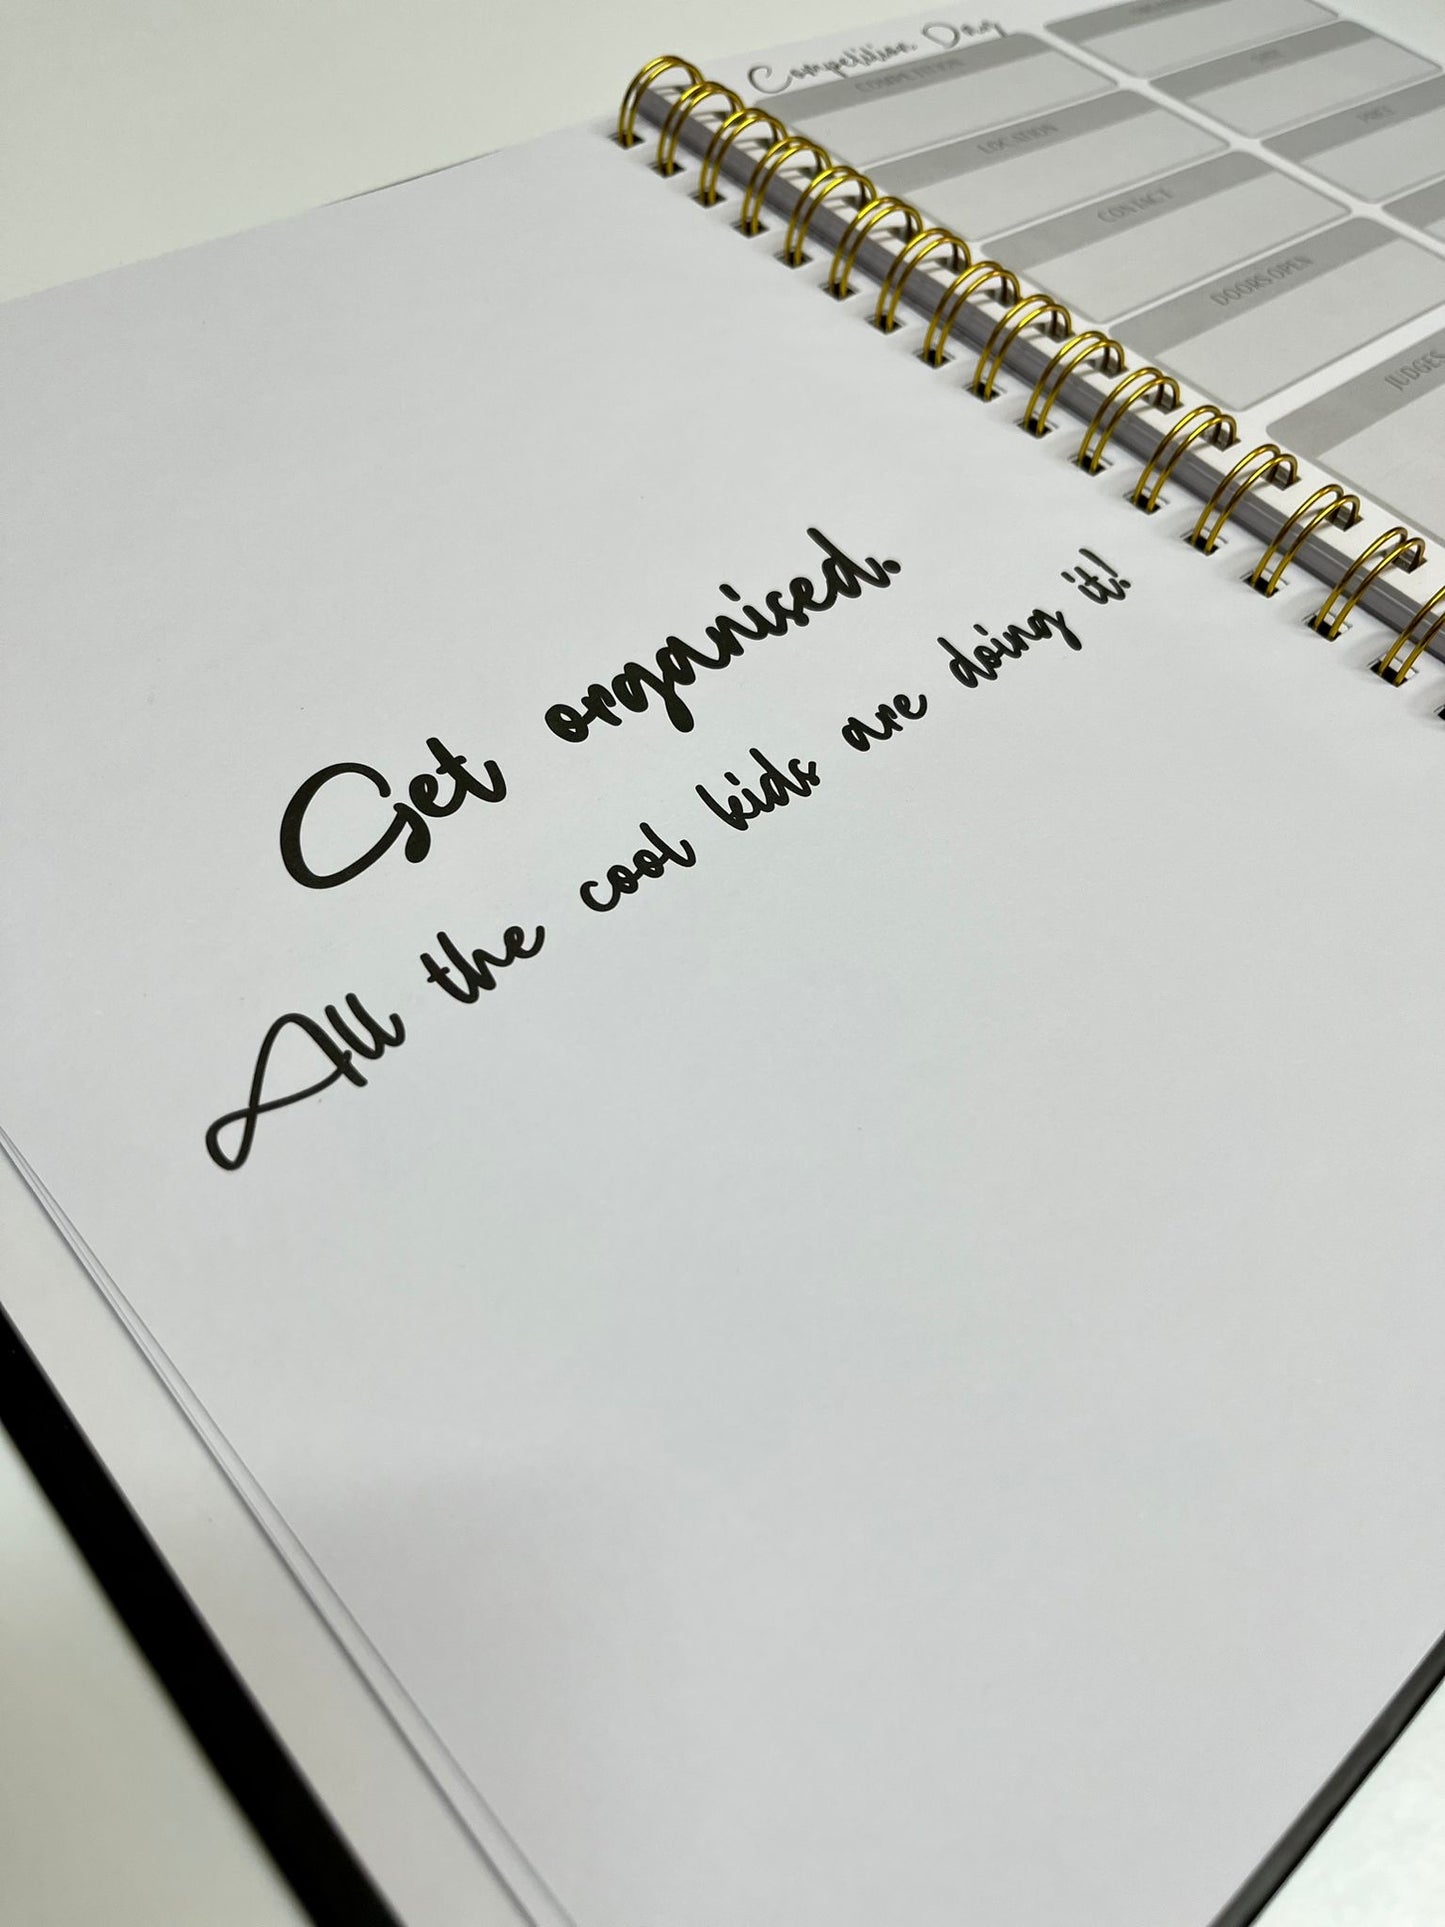 Get organised.
All the cool kids are doing it!
Competition Day
COMPETITION
LOCATION
CONTACT
DOORS OPEN
JUDGES
DATE
PRICE